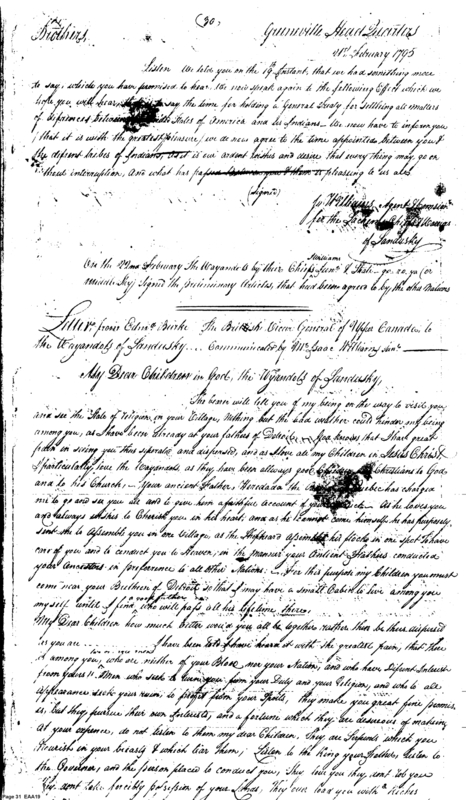 (30)
Brothers
Greenville Head Quarters
21st February 1795
Listen We told you on the 19th Instant, that we had something more
to say, which you have promised to hear. We now speak again to the following Effect which we
hope you will hear, that is to say the time for holding a General Treaty for Settling all matters
of differences between the States of America and her Indians. We now have to inform you
that it is with the greatest pleasure, we do now agree to the time appointed between you &
the different tribes of Indians, and it is our ardent wishes and desire that every thing may go on
without interruption, And what has passed between you & them is pleasing to us also
(Signed)
Williams Agent &
for the Chiefs &
of Sandusky
On the 22nd February The Wayandots by their Chiefs Senr. & State-ga-ra-ya (or
middle Sky) Signed the Preliminary Articles, that had been agreed to by the other Nations
Williams
Letter from Edmd. Burke The British Vicar General of Upper Canada to
the Wayandots of Sandusky Communicated by Mr. Isaac Williams Senr.
My Dear Children in God, the Wyandots of Sandusky,
The bearer will tell you of my being on the way to visit you
and see the State of religion in your Village, Nothing but the bad weather could hinder my being
among you, as I have been already at your fathers of Detroit. God knows that I had great
pain on seeing you thus separated and dispersed, and as I love all my Children in Jesus Christ
& particularly, love the Wayandots as they have been allways good Children & Christians to God
and to his Church. Your ancient Father, has charged
me to go and see you all and to give him a faithful account of your As he loves you
and always wishes to Cherish you in his heart, and as he Cannot come himself, he has purposely
sent me to Assemble you in one Village, as the Shepheard assembles his flocks in one Spot to have
care of you and to conduct you to Heaven, in the manner your Antient Fathers conducted
your Ancestors in preference to all other Nations. For this purpose my Children you must
come near your Brethern of Detroit so that I may have a small Cabin to live among you
myself until I find who will pass all his lifetime there,
My Dear Children how much better wou'd you all be together rather than be thus dispersed
as you are I have been told & have heard it with the greatest pain, that there
is among you, who are neither of your Blood, nor your Nation, and who have different Interest
from yours. Men who seek to turn you from your Duty and your Religion, and who to all
appearance seek your ruin, to profit from your Spoils, they make you great fine promis-
es, but they pursue their own Interests, and a fortune which they are desireous of making
at your expence, do not listen to them my dear Children, They are Serpents which you
Nourish in your breasts & which bear them; Listen to the King your Father, Listen to
the Governor, and the person placed to conduct you, They love you they dont let you
They dont take forcibly possession of your Lands, They
Page 31 EAA19